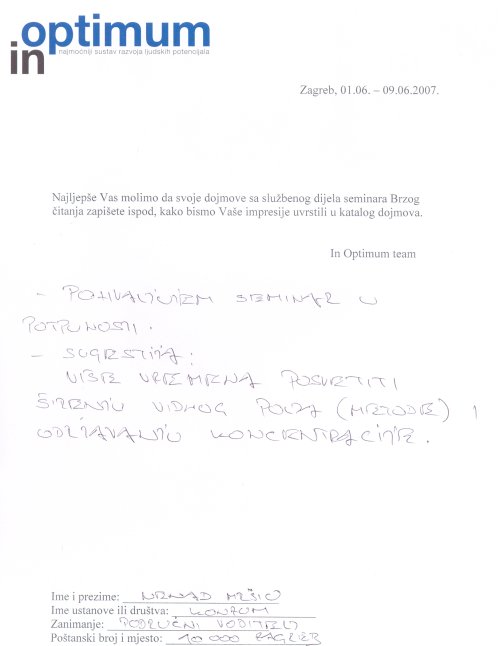 in optimum
najmoćniji sustav razvoja ljudskih potencijala
Zagreb, 01.06. – 09.06.2007.
Najljepše Vas molimo da svoje dojmove sa službenog dijela seminara Brzog
čitanja zapišete ispod, kako bismo Vaše impresije uvrstili u katalog dojmova.
In Optimum team
- POHVALJUJEM SEMINAR U
POTPUNOSTI.
- SUGESTIJA:
VIŠE VREMENA POSVETITI
ŠIRENJU VIDNOG POLJA (METODE) I
ODRŽAVANJU KONCENTRACIJE.
Ime i prezime: NENAD MRŠIĆ
Ime ustanove ili društva: KONZUM
Zanimanje: PODRUČNI VODITELJ
Poštanski broj i mjesto: 10 000 ZAGREB